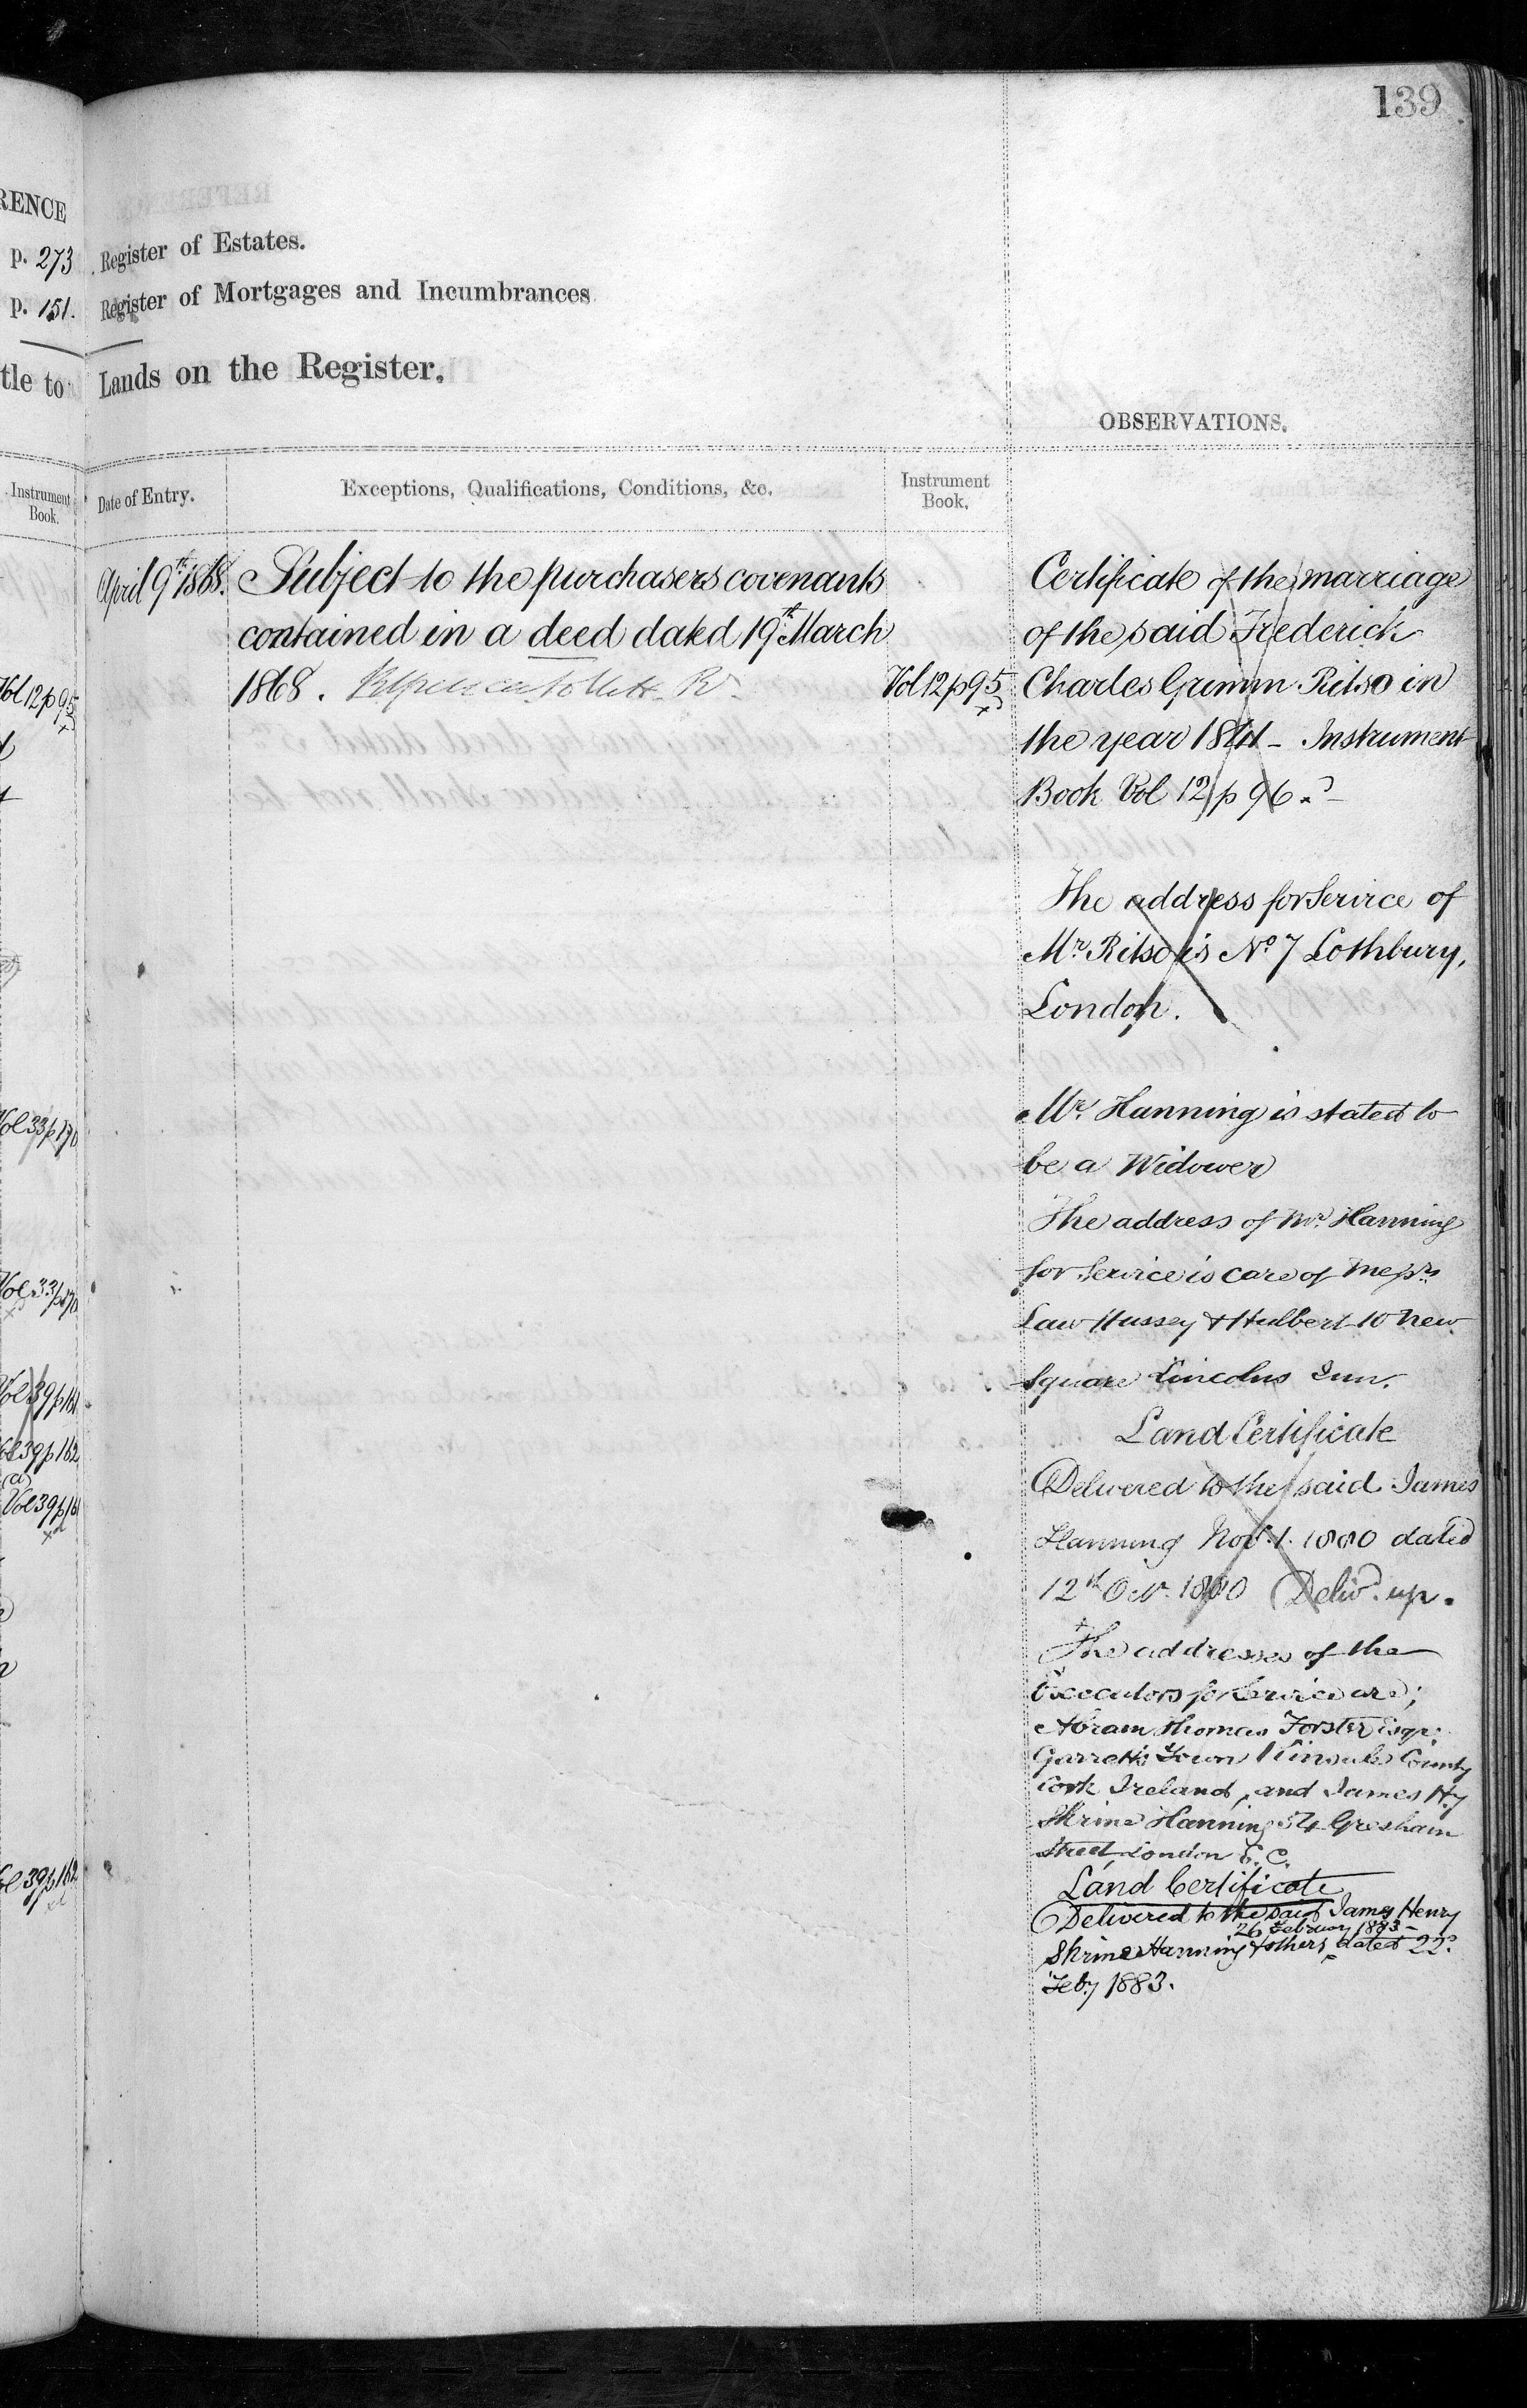 139
RENCE
p. 273
p. 151.
tle to
Instrument
Book.
Vol 12 p 95
Vol 33 p 170
Vol 33 p 170
Vol 39 p 161
Vol 39 p 162
(a)
Vol 39 p 161
Vol 39 p 162
Register of Estates.
Register of Mortgages and Incumbrances
Lands on the Register.
OBSERVATIONS.
Date of Entry.
Exceptions, Qualifications, Conditions, &c.
Instrument
Book.
April 9th 1868.
Subject to the purchasers covenants
contained in a deed dated 19th March
1868.
Vol 12 p 95
Certificate of the marriage
of the said Frederick
Charles Grimm Ritso in
the year 1841 - Instrument
Book Vol 12 p 96
The address for Service of
Mr. Ritso is No 7 Lothbury,
London.
Mr. Hanning is stated to
be a Widower
The address of Mr. Hanning
for Service is care of Messrs
Law Hussey & Hulbert 10 New
Square Lincolns Inn.
Land Certificate
Delivered to the said James
Hanning Nov. 1. 1880 dated
12th Oct. 1880 Delivd. up.
The addresses of the
Executors for Service are;
Abram Thomas Forster Esqr.
Garretts Town Kinsale County
Cork Ireland, and James Hy
Shrine Hanning 54 Gresham
Street London E. C.
Land Certificate
Delivered to the said James Henry
26 February 1883 -
Shrine Hanning & others dated 22d
Feby 1883.